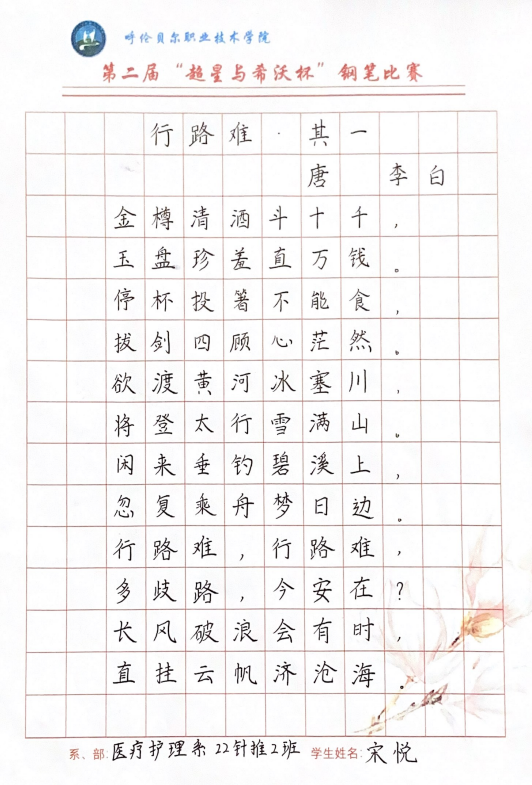 呼伦贝尔职业技术学院
第二届“超星与希沃杯”钢笔比赛
行路难·其一
唐 李白
金樽清酒斗十千,
玉盘珍羞直万钱。
停杯投箸不能食,
拔剑四顾心茫然。
欲渡黄河冰塞川,
将登太行雪满山。
闲来垂钓碧溪上,
忽复乘舟梦日边。
行路难,行路难,
多歧路,今安在?
长风破浪会有时,
直挂云帆济沧海。
系、部:医疗护理系22针推2班 学生姓名:宋悦